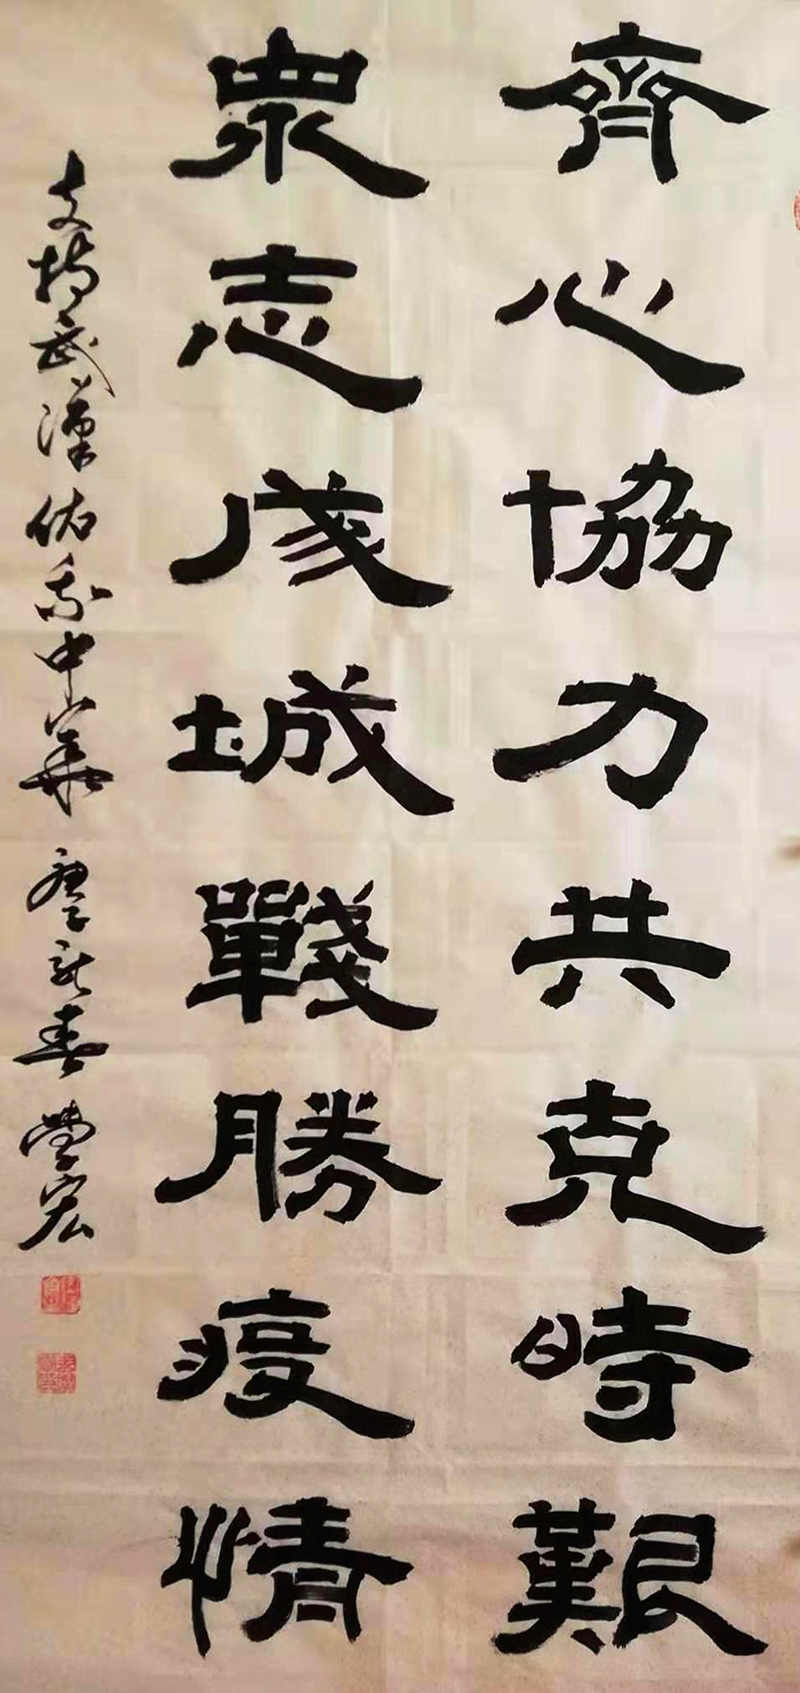 齊心協力共克時艱
衆志成城戰勝疫情
支持武漢佑我中華 庚子新春 学宏